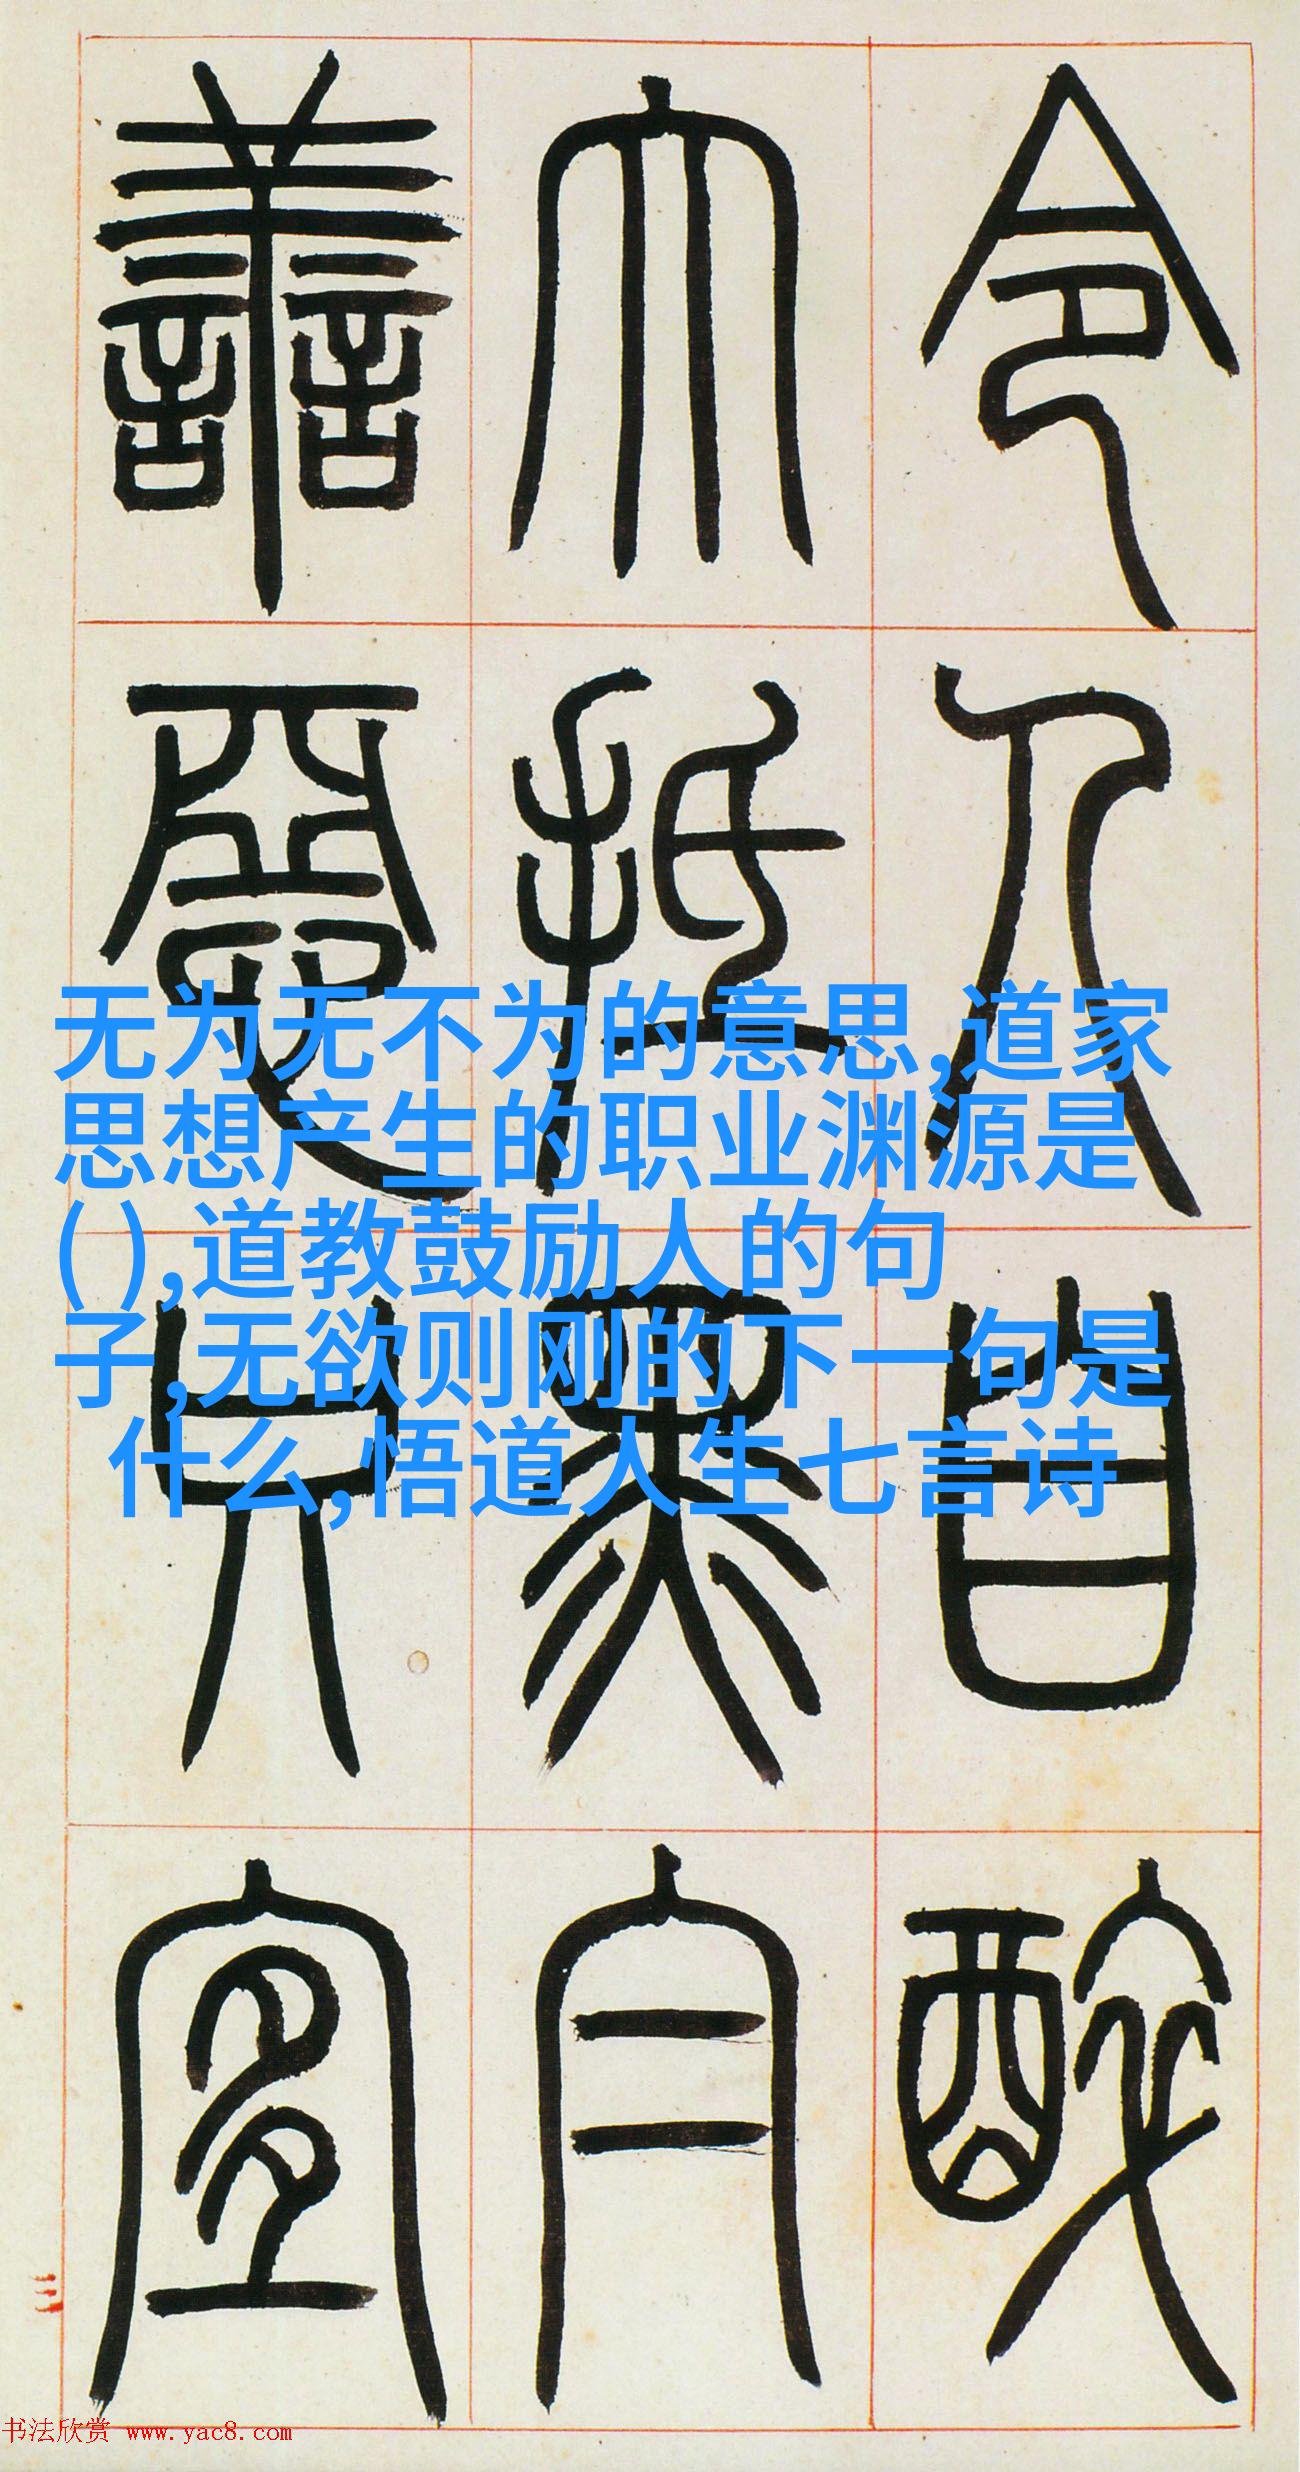 令人自醉
大抵
善宜
无为无不为的意思,道家
思想产生的职业渊源是
(),道教鼓励人的句
子,无欲则刚的下一句是
什么,悟道人生七言诗
书法欣赏 www.yac8.com